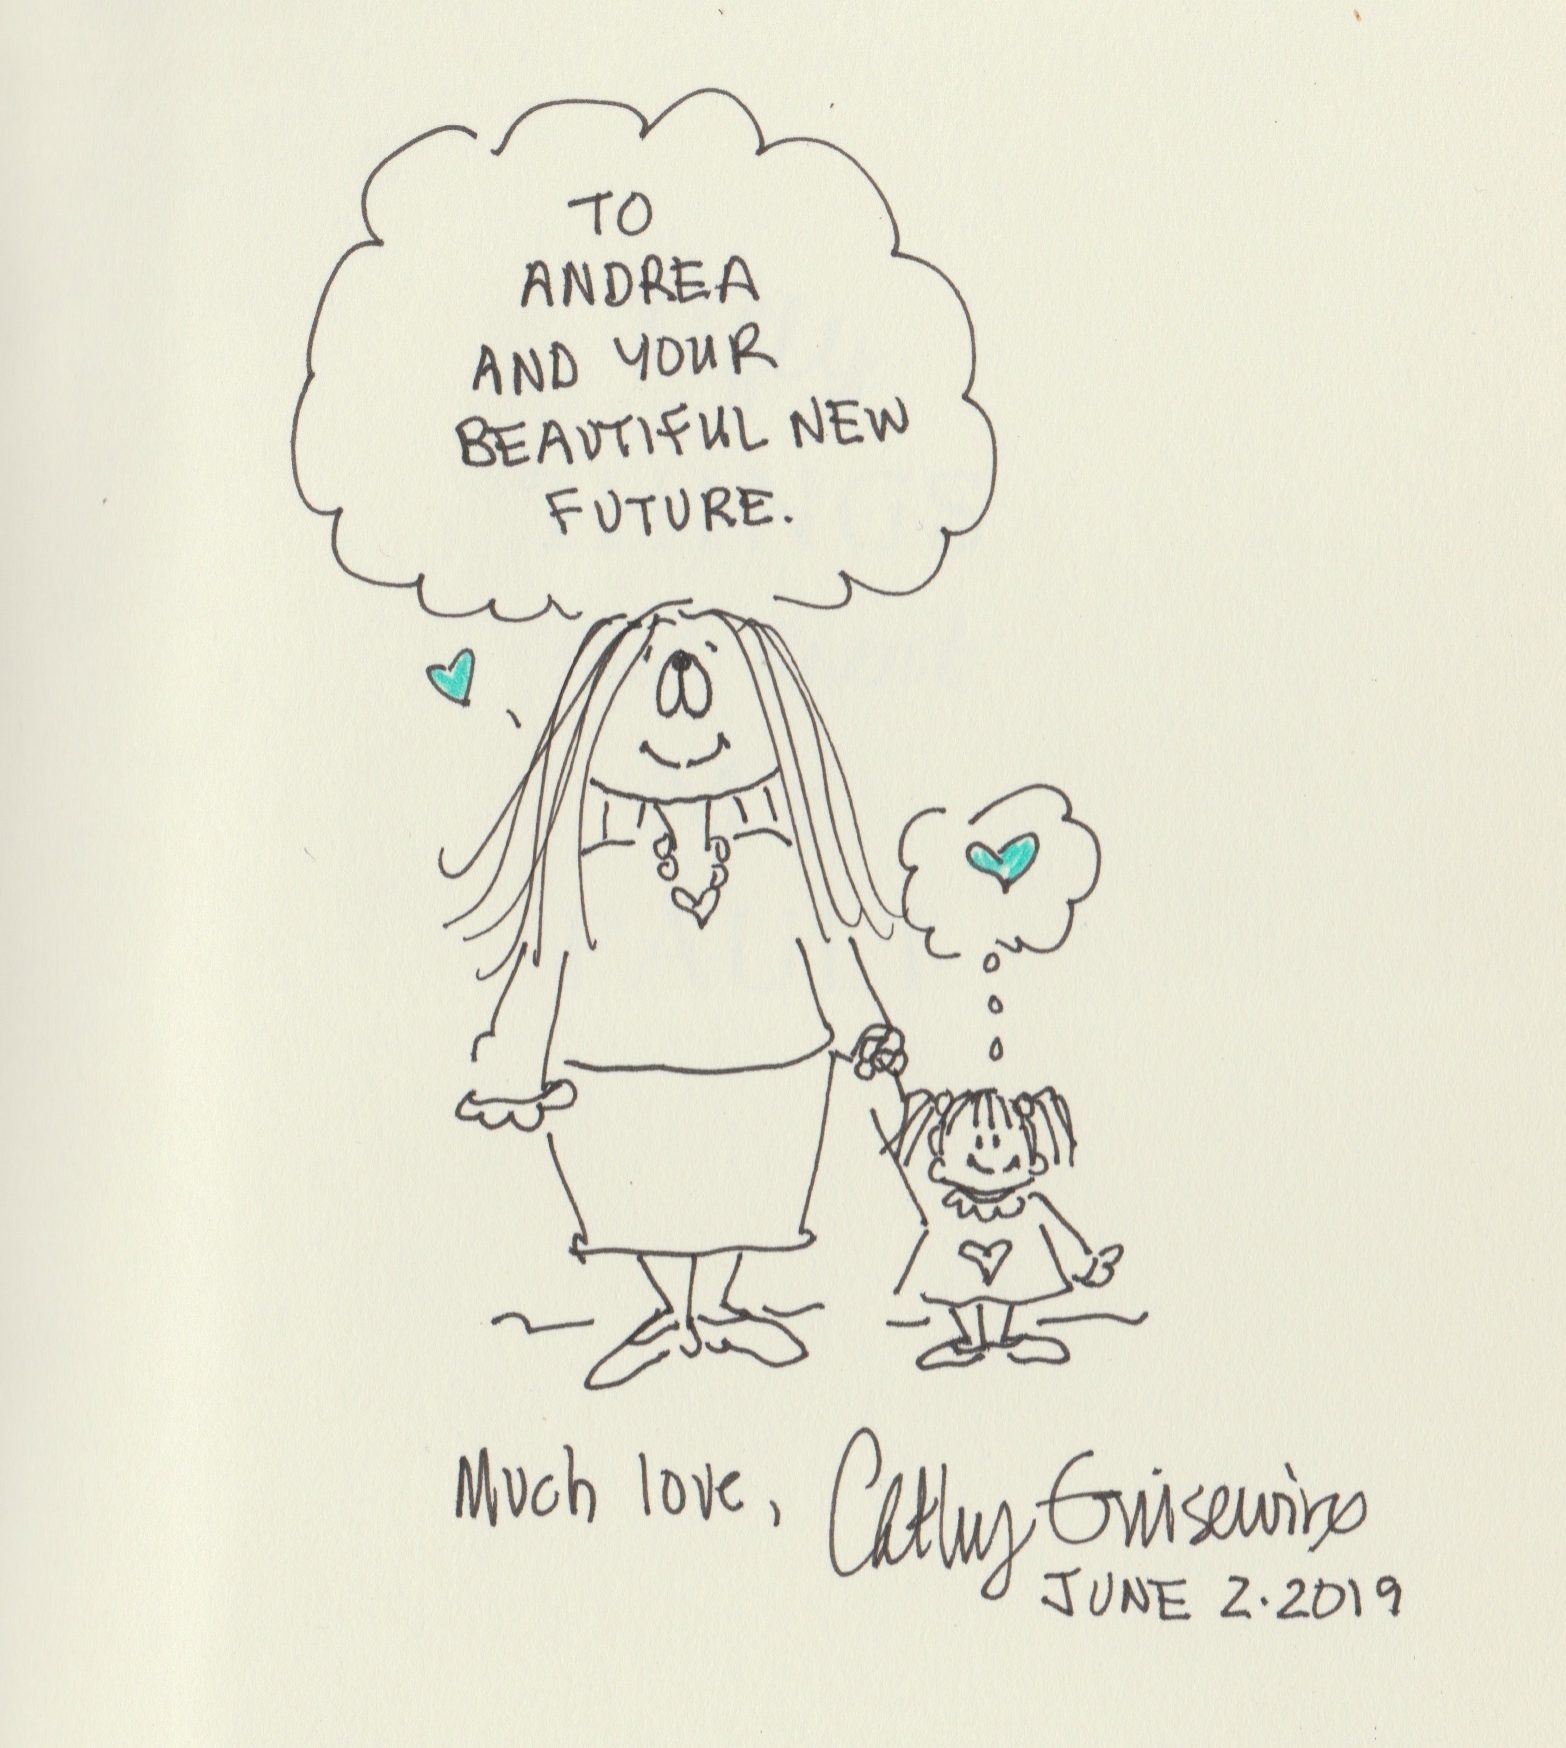 TO
ANDREA
AND YOUR
BEAUTIFUL NEW
FUTURE.
Much love, Cathy Guisewite
JUNE 2.2019